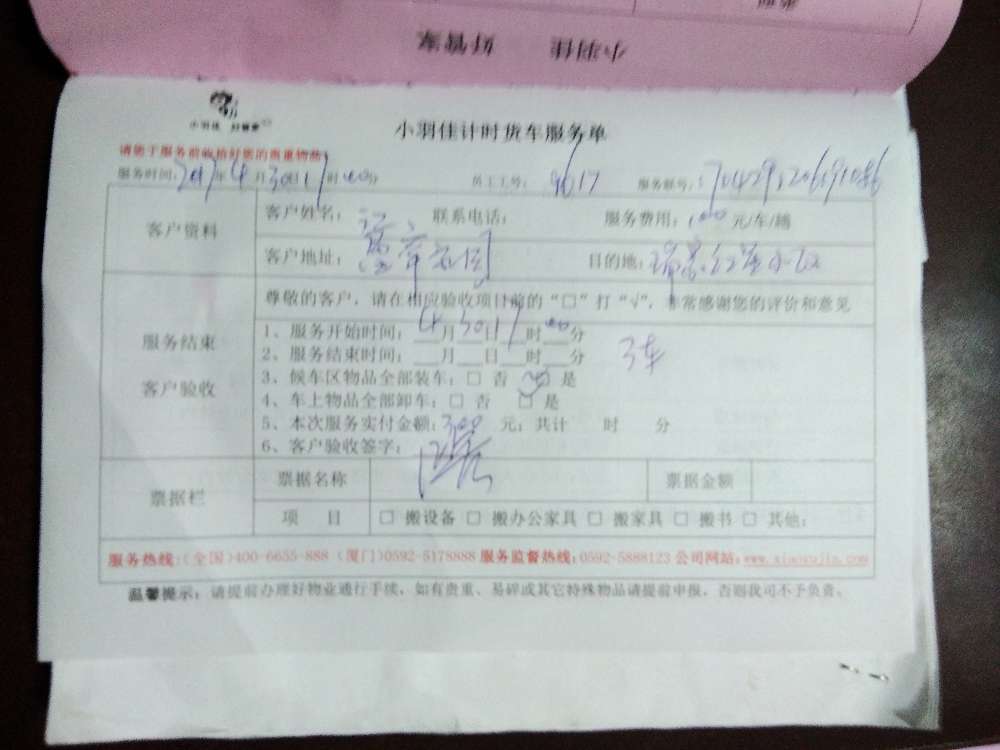 小羽佳 好管家
小羽佳 好管家
小羽佳计时货车服务单
请您于服务前收拾好您的贵重物品！
服务时间：2017年4月30日17时00分 员工工号：9617 服务账号：
客户资料 客户姓名： 联系电话： 服务费用：100元/车/趟
客户地址： 目的地：
尊敬的客户，请在相应验收项目前的“□”打“√”，非常感谢您的评价和意见
服务结束
客户验收
1、服务开始时间：4月30日17时00分
2、服务结束时间：__月__日__时__分 3车
3、候车区物品全部装车：□ 否 □ 是
4、车上物品全部卸车：□ 否 □ 是
5、本次服务实付金额：300元；共计 时 分
6、客户验收签字：
票据栏 票据名称 票据金额
项 目 □ 搬设备 □ 搬办公家具 □ 搬家具 □ 搬书 □ 其他：
服务热线：（全国）400-6655-888（厦门）0592-5178888 服务监督热线：0592-5888123 公司网站：www.xiaoyujia.com
温馨提示：请提前办理好物业通行手续，如有贵重、易碎或其它特殊物品请提前申报，否则我司不予负责。